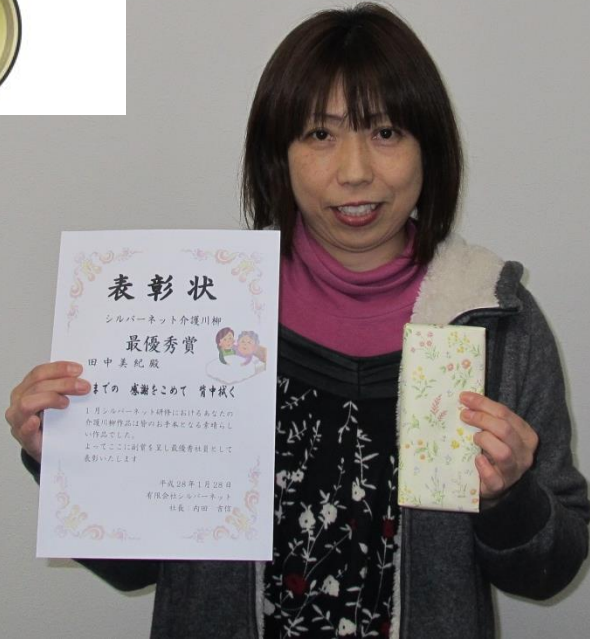 表彰状
シルバーネット介護川柳
最優秀賞
田中美紀殿
までの 感謝をこめて 背中拭く
1月シルバーネット研修におけるあなたの
介護川柳作品は皆のお手本となる素晴らし
い作品でした。
よってここに副賞を呈し最優秀社員として
表彰いたします
平成28年1月28日
有限会社シルバーネット
社長 内田